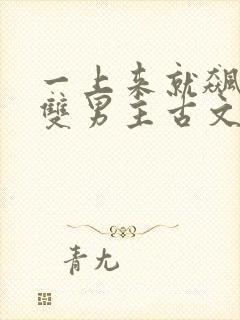 一上来就飙
雙男主古文
青尢